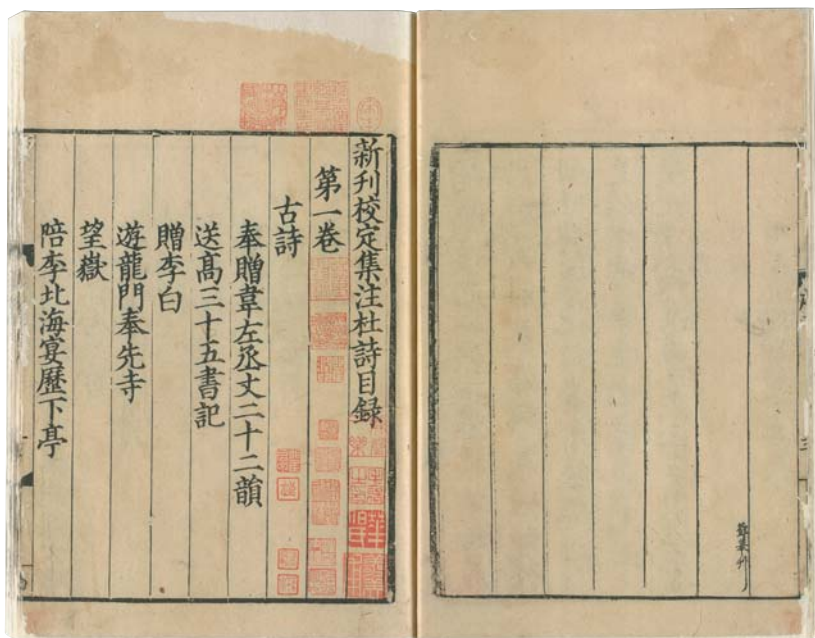 新刋校定集注杜詩目録
第一卷
古詩
奉贈韋左丞丈二十二韻
送髙三十五書記
贈李白
遊龍門奉先寺
望嶽
陪李北海宴歷下亭